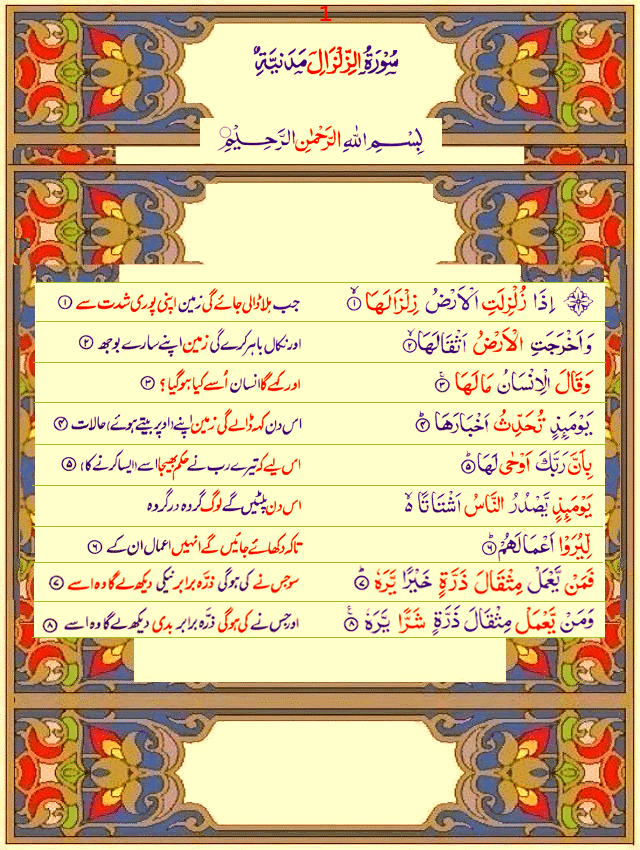 1
سُوْرَةُ الزِّلْزَالِ مَدَنِیَّةٌ
بِسْمِ اللّٰهِ الرَّحْمٰنِ الرَّحِیْمِ
اِذَا زُلْزِلَتِ الْاَرْضُ زِلْزَالَهَا ۙ﴿۱﴾ جب ہلا ڈالی جائے گی زمین اپنی پوری شدت سے ﴿۱﴾
وَاَخْرَجَتِ الْاَرْضُ اَثْقَالَهَا ۙ﴿۲﴾ اور نکال باہر کرے گی زمین اپنے سارے بوجھ ﴿۲﴾
وَقَالَ الْاِنْسَانُ مَا لَهَا ۚ﴿۳﴾ اور کہے گا انسان اُسے کیا ہو گیا ؟ ﴿۳﴾
یَوْمَىِٕذٍ تُحَدِّثُ اَخْبَارَهَا ؕ﴿۴﴾ اس دن کہہ ڈالے گی زمین اپنے (اوپر بیتے ہوئے) حالات ﴿۴﴾
بِاَنَّ رَبَّكَ اَوْحٰى لَهَا ؕ﴿۵﴾ اس لیے کہ تیرے رب نے حکم بھیجا اسے (ایسا کرنے کا) ﴿۵﴾
یَوْمَىِٕذٍ یَّصْدُرُ النَّاسُ اَشْتَاتًا ۙ اس دن پلٹیں گے لوگ گروہ در گروہ
لِّیُرَوْا اَعْمَالَهُمْ ؕ﴿۶﴾ تاکہ دکھائے جائیں گے انہیں اعمال ان کے ﴿۶﴾
فَمَنْ یَّعْمَلْ مِثْقَالَ ذَرَّةٍ خَیْرًا یَّرَهٗ ؕ﴿۷﴾ سو جس نے کی ہوگی ذرّہ برابر نیکی دیکھ لے گا وہ اسے ﴿۷﴾
وَمَنْ یَّعْمَلْ مِثْقَالَ ذَرَّةٍ شَرًّا یَّرَهٗ ۠﴿۸﴾ اور جس نے کی ہوگی ذرّہ برابر بدی دیکھ لے گا وہ اسے ﴿۸﴾